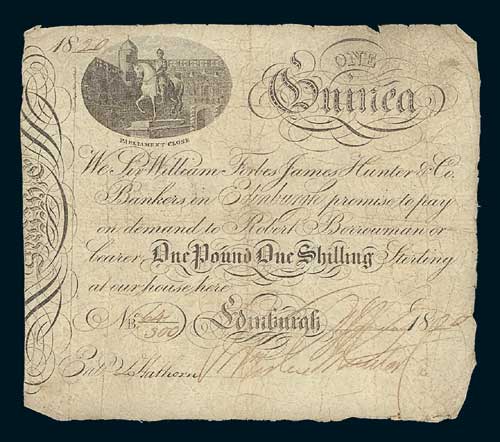 1820
ONE
Guinea
PARLIAMENT CLOSE
We Sir William Forbes James Hunter & Co.
Bankers in Edinburgh promise to pay
on demand to Robert Borrowman or
bearer One Pound One Shilling Sterling
at our house here
No. 64/300 Edinburgh 1820
Entd.